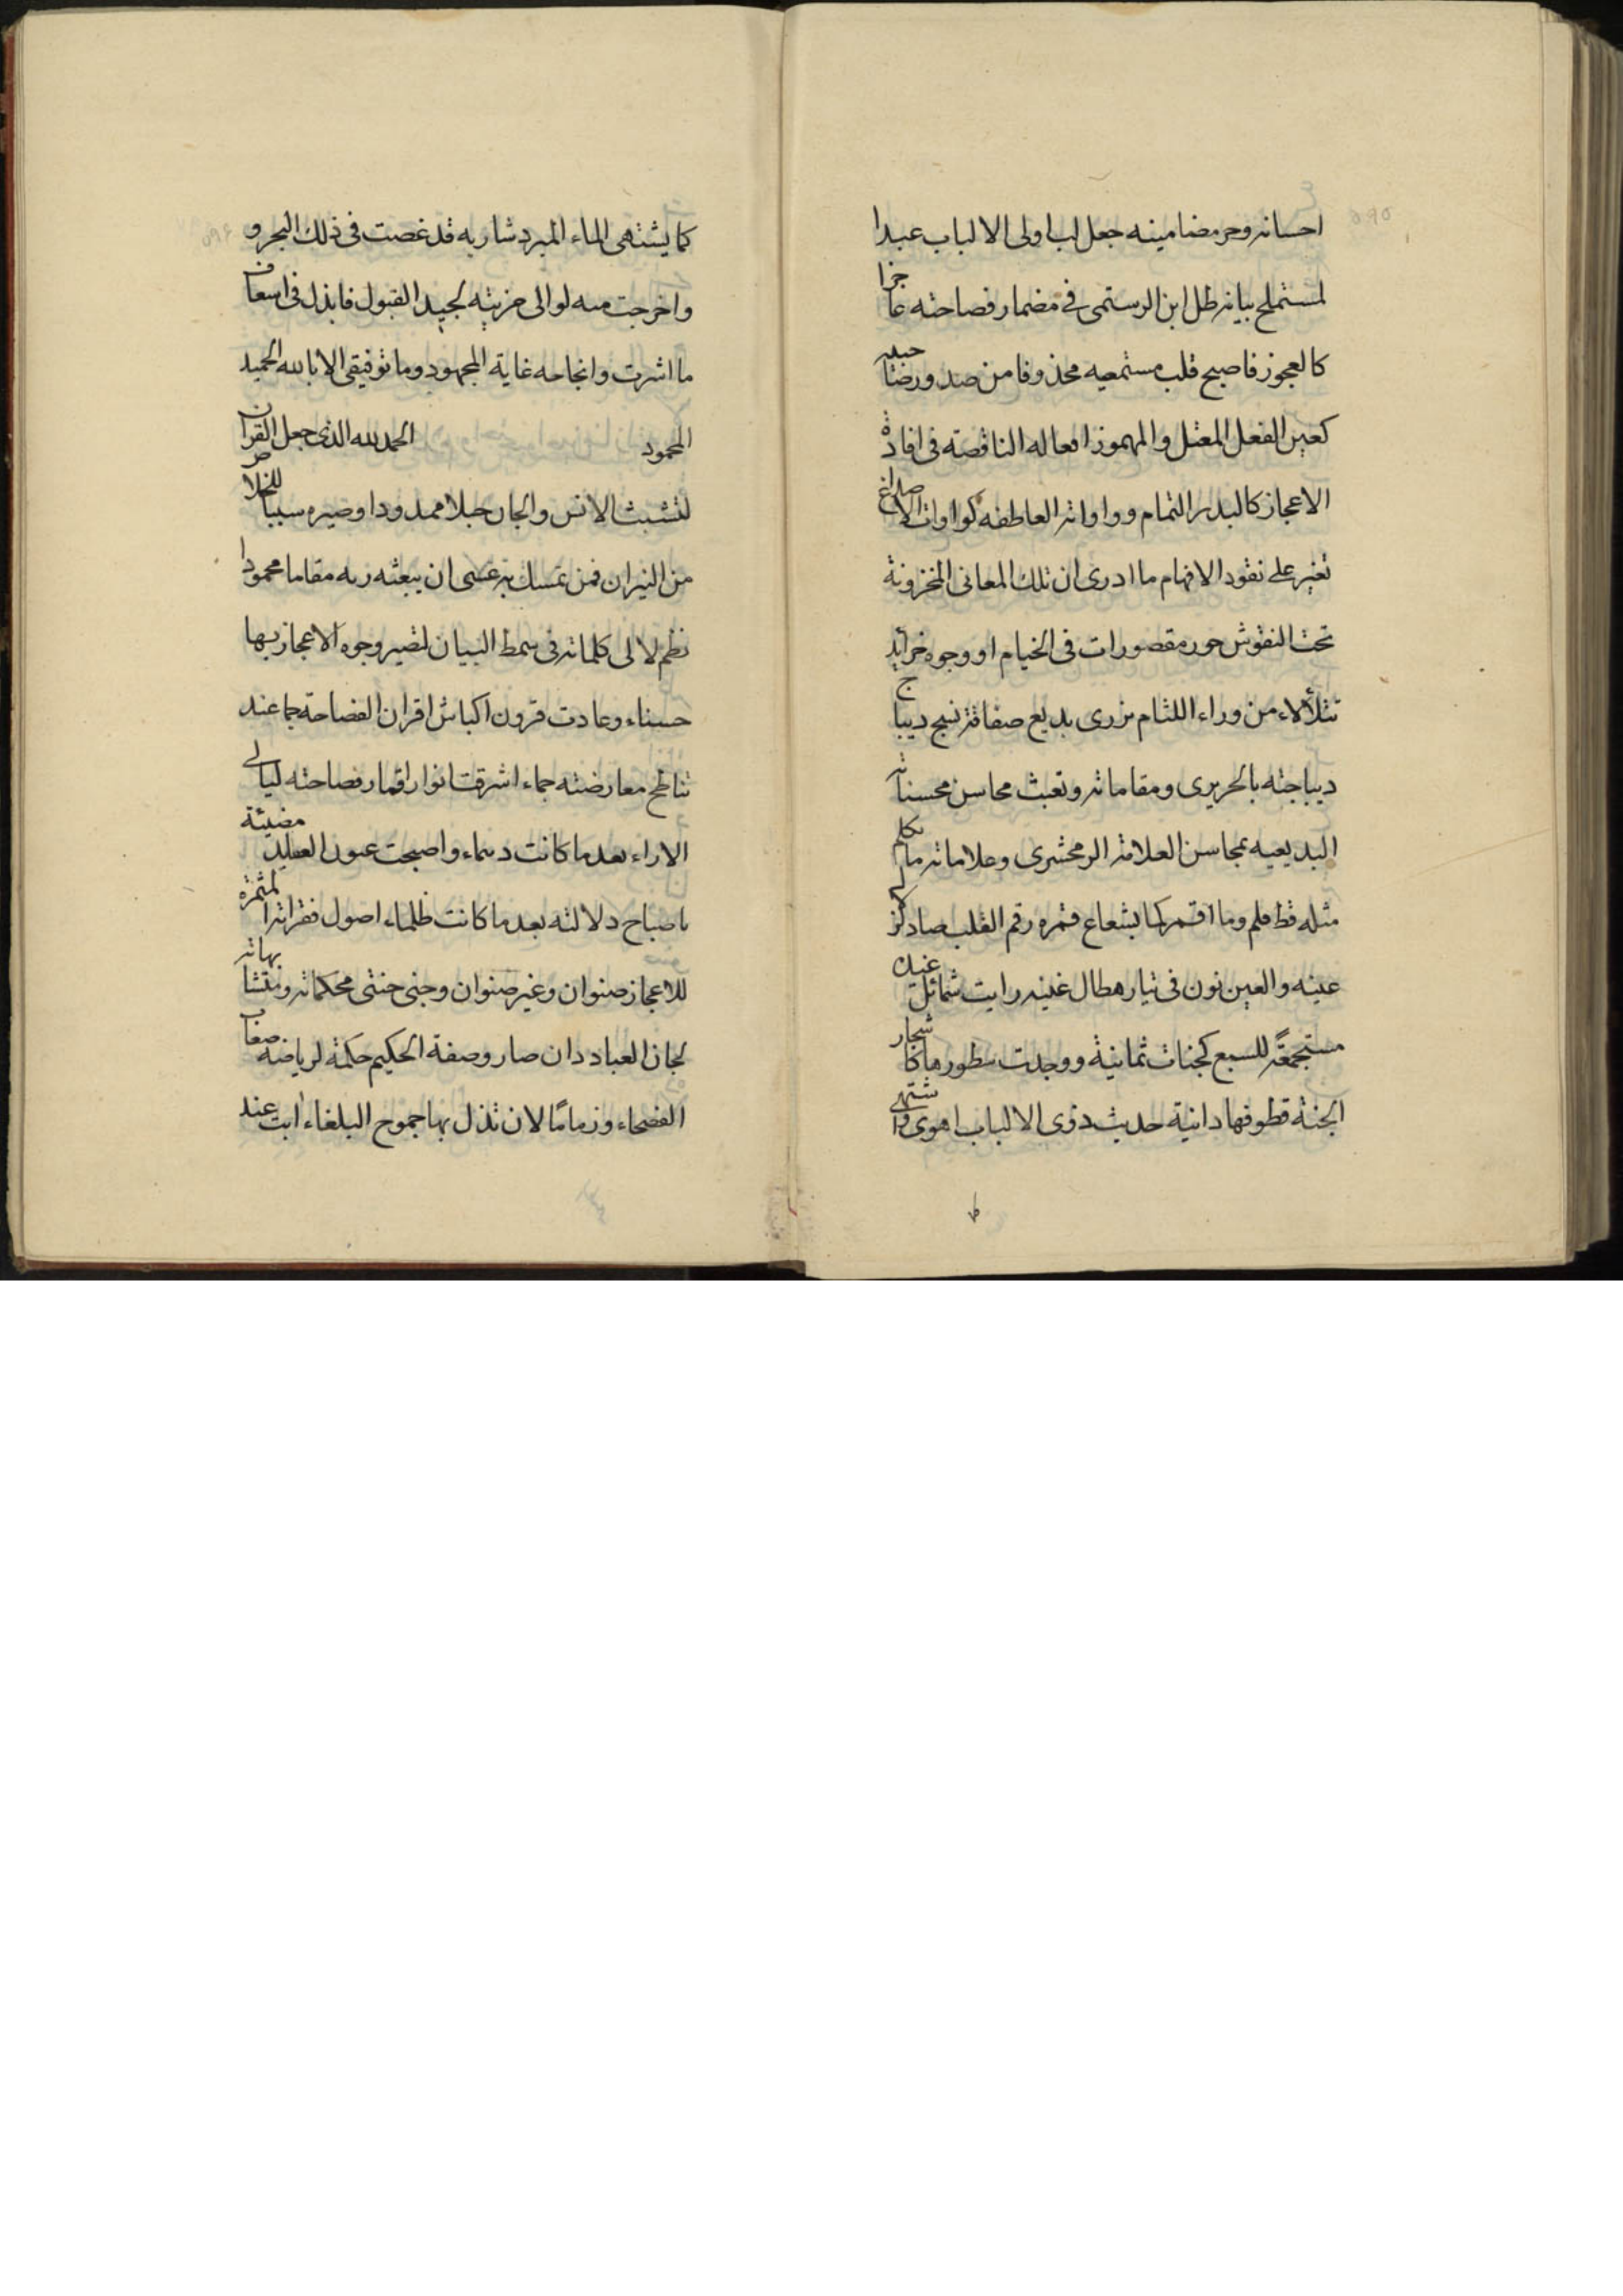 احسانه وحر مضامينه جعل لب اولى الالباب عبدا
لمستملح بيانه ظل ابن الرستمى فى مضمار فصاحته عاجزا
كالعجوز فاصبح قلب مستمعيه محذوفا من صدور
كعين الفعل المعتل والمهموز افعاله الناقصة فى افادة
الاعجاز كالبدر التمام وواواته العاطفه كواوات الاصداغ
تعنبر على نقود الافهام ما ادرى ان تلك المعانى المخزونة
تحت النقوش حور مقصورات فى الخيام او وجوه خرائد
تتلألاء من وراء اللثام يزرى بديع صفاقته نسج ديباج
ديباجته بالحريرى ومقاماته وتعبث محاسن محسناته
البديعيه بمحاسن العلامة الزمخشرى وعلاماته ما تكلم
مثله قط فلم وما اقمر كما بشعاع قمره رقم القلب صاد
عينه والعين نون فى تيار هطال غينه رايت شمائل
مستجمعة للسبع كجنات ثمانية ووجدت سطورها كاشجار
الجنة قطوفها دانية حديث ذوى الالباب اهوى واشتهى
كما يشتهى الماء المبرد شاربه قد غصت فى ذلك البحر و
واخرجت منه لوالى حزينه لجيد القبول فابذل فى اسعاف
ما اشرت وانجاحه غاية المجهود وما توفيقى الا بالله الحميد
المحمود الحمد لله الذى جعل القران
لتشبث الانس والجان حبلا ممدودا وصيره سببا للخلاص
من النيران فمن تمسك به عسى ان يبعثه ربه مقاما محمودا
نظم لالى كلماته فى سمط البيان لتصير وجوه الاعجاز بها
حسناء وعادت قرون اكباش اقران الفصاحة جما عند
تناطح معارضته جماء اشرقت انوار اقمار فصاحته ليالى
الاراء بعد ما كانت دسماء واصبحت عيون مضيئة
باصباح دلالته بعد ما كانت ظلماء اصول فقراته المثمرة
للاعجاز صنوان وغير صنوان وجنى جنتى محكماته ومتشابهاته
لجان العباد دان صار وصفة الحكيم حكمة لرياضة
الفصحاء وزماما لان تذل بها جموح البلغاء ابت عند